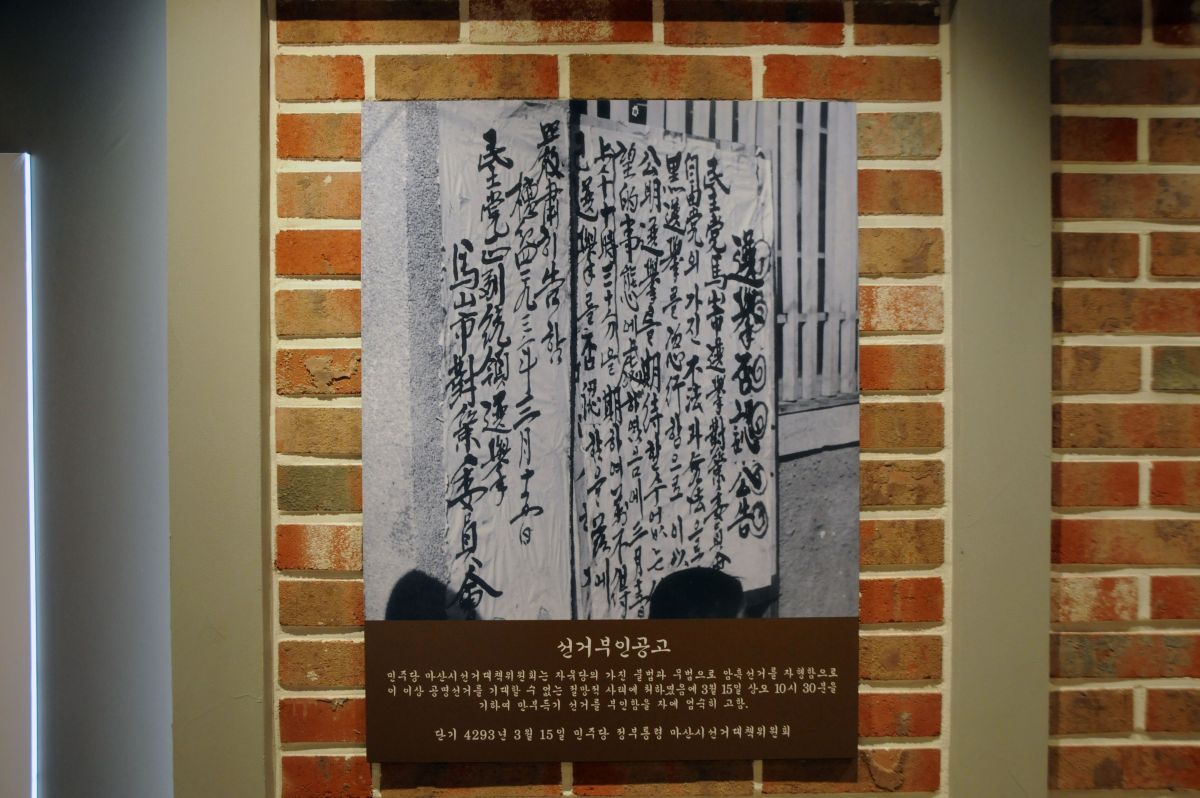 選擧否認公告
民主党馬山市選擧對策委員会
自由党의 가진 不法과 無法으로
黑選擧를 恣行함으로 이 以
公明選擧를 期待할수없는
望的事態에 處하였음에 三月十五
上午十時三十分을 期하여 万不得
已 選擧를 否認함을 玆에
嚴肅히 告함
檀紀四二九三年 三月十五日
民主党正副統領選擧
馬山市對策委員会
선거부인공고
민주당 마산시선거대책위원회는 자유당의 가진 불법과 무법으로 암흑선거를 자행함으로
이 이상 공명선거를 기대할 수 없는 절망적 사태에 처하였음에 3월 15일 상오 10시 30분을
기하여 만부득기 선거를 부인함을 자에 엄숙히 고함.
단기 4293년 3월 15일 민주당 정부통령 마산시선거대책위원회